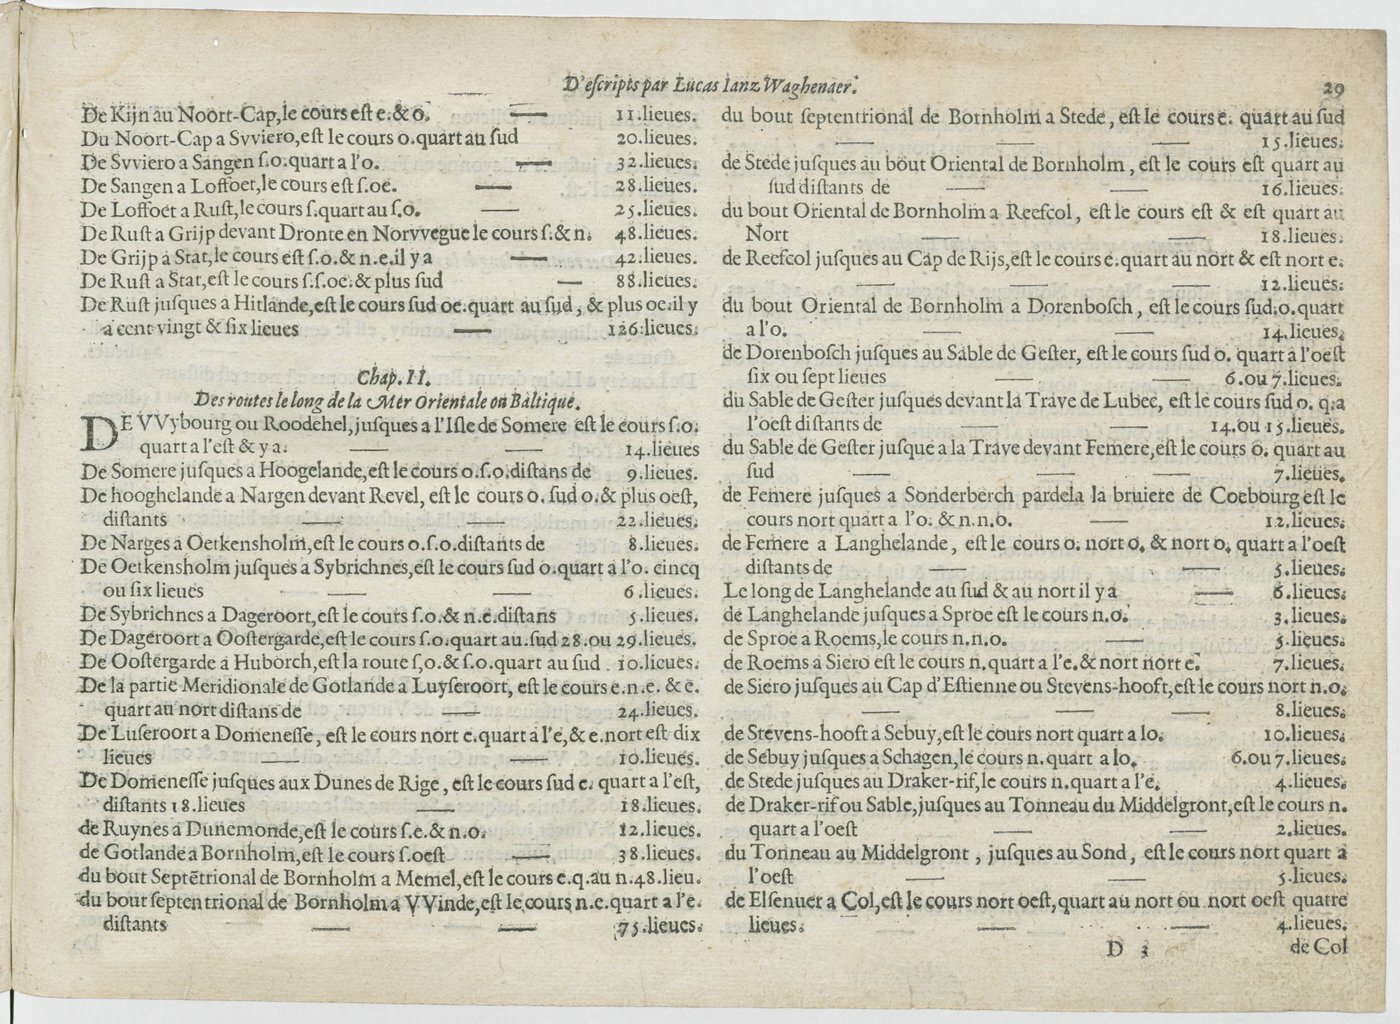 D'escripts par Lucas Ianz Waghenaer.
29
De Kijn au Noort-Cap, le cours est e. & o. 11. lieues.
Du Noort-Cap a Svviero, est le cours o. quart au sud 20. lieues.
De Svviero a Sangen s.o. quart a l'o. 32. lieues.
De Sangen a Loffoet, le cours est s.oe. 28. lieues.
De Loffoet a Rust, le cours s. quart au s.o. 25. lieues.
De Rust a Grijp devant Dronte en Norvvegue le cours s. & n. 48. lieues.
De Grijp a Stat, le cours est s.o. & n.e. il y a 42. lieues.
De Rust a Stat, est le cours s.s.oe. & plus sud 88. lieues.
De Rust jusques a Hitlande, est le cours sud oe. quart au sud, & plus oe. il y
a cent vingt & six lieues 126. lieues.
Chap. II.
Des routes le long de la Mer Orientale ou Baltique.
DE VVybourg ou Roodehel, jusques a l'Isle de Somere est le cours s.o.
quart a l'est & y a. 14. lieues
De Somere jusques a Hoogelande, est le cours o.s.o. distans de 9. lieues.
De hooghelande a Nargen devant Revel, est le cours o. sud o. & plus oest,
distants 22. lieues.
De Narges a Oetkensholm, est le cours o.s.o. distants de 8. lieues.
De Oetkensholm jusques a Sybrichnes, est le cours sud o. quart a l'o. cincq
ou six lieues 6. lieues.
De Sybrichnes a Dageroort, est le cours s.o. & n.e. distans 5. lieues.
De Dageroort a Oostergarde, est le cours s.o. quart au sud 28. ou 29. lieues.
De Oostergarde a Huborch, est la route s.o. & s.o. quart au sud 10. lieues.
De la partie Meridionale de Gotlande a Luyseroort, est le cours e.n.e. & e.
quart au nort distans de 24. lieues.
De Luseroort a Domenesse, est le cours nort e. quart a l'e, & e. nort est dix
lieues 10. lieues.
De Domenesse jusques aux Dunes de Rige, est le cours sud e. quart a l'est,
distants 18. lieues 18. lieues.
de Ruynes a Dunemonde, est le cours s.e. & n.o. 12. lieues.
de Gotlande a Bornholm, est le cours s.oest 38. lieues.
du bout Septētrional de Bornholm a Memel, est le cours e.q. au n. 48. lieu.
du bout septentrional de Bornholm a VVinde, est le cours n.e. quart a l'e.
distants 75. lieues.
du bout septentrional de Bornholm a Stede, est le cours e. quart au sud
15. lieues.
de Stede jusques au bout Oriental de Bornholm, est le cours est quart au
sud distants de 16. lieues.
du bout Oriental de Bornholm a Reefcol, est le cours est & est quart au
Nort 18. lieues.
de Reefcol jusques au Cap de Rijs, est le cours e. quart au nort & est nort e.
12. lieues.
du bout Oriental de Bornholm a Dorenbosch, est le cours sud. o. quart
a l'o. 14. lieues.
de Dorenbosch jusques au Sable de Gester, est le cours sud o. quart a l'oest
six ou sept lieues 6. ou 7. lieues.
du Sable de Gester jusques devant la Trave de Lubec, est le cours sud o. q. a
l'oest distants de 14. ou 15. lieues.
du Sable de Gester jusque a la Trave devant Femere, est le cours o. quart au
sud 7. lieues.
de Femere jusques a Sonderberch pardela la bruiere de Coebourg est le
cours nort quart a l'o. & n.n.o. 12. lieues.
de Femere a Langhelande, est le cours o. nort o. & nort o. quart a l'oest
distants de 5. lieues.
Le long de Langhelande au sud & au nort il y a 6. lieues.
de Langhelande jusques a Sproe est le cours n.o. 3. lieues.
de Sproe a Roems, le cours n.n.o. 5. lieues.
de Roems a Siero est le cours n. quart a l'e. & nort nort e. 7. lieues.
de Siero jusques au Cap d'Estienne ou Stevens-hooft, est le cours nort n.o.
8. lieues.
de Stevens-hooft a Sebuy, est le cours nort quart a lo. 10. lieues.
de Sebuy jusques a Schagen, le cours n. quart a lo. 6. ou 7. lieues.
de Stede jusques au Draker-rif, le cours n. quart a l'e. 4. lieues.
de Draker-rif ou Sable, jusques au Tonneau du Middelgront, est le cours n.
quart a l'oest 2. lieues.
du Tonneau au Middelgront, jusques au Sond, est le cours nort quart a
l'oest 5. lieues.
de Elsenuer a Col, est le cours nort oest, quart au nort ou nort oest quatre
lieues. 4. lieues.
D 3
de Col